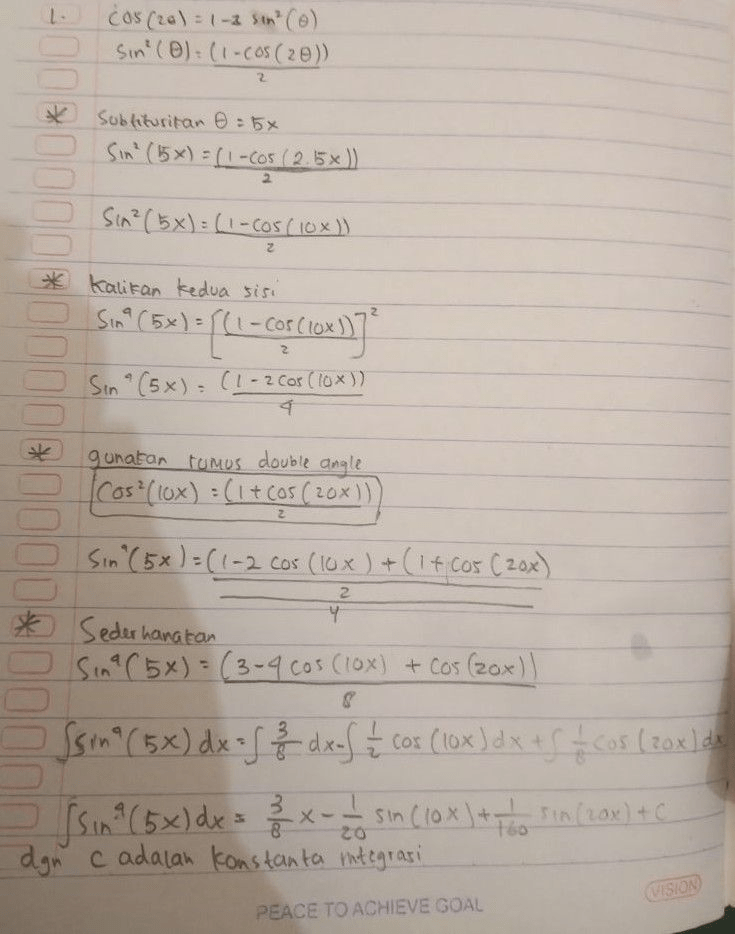 1. cos(2θ) = 1-2 sin²(θ)
sin²(θ) = (1-cos(2θ))/2
* Subtitusikan θ = 5x
Sin²(5x) = (1-cos(2.5x))/2
Sin²(5x) = (1-cos(10x))/2
* Kalikan kedua sisi
Sin⁴(5x) = [(1-cos(10x))/2]²
Sin⁴(5x) = (1-2cos(10x))/4
* gunakan rumus double angle
Cos²(10x) = (1+cos(20x))/2
Sin⁴(5x) = (1-2 cos(10x) + (1+cos(20x)/2/4
* Sederhanakan
Sin⁴(5x) = (3-4cos(10x) + cos(20x))/8
∫sin⁴(5x) dx = ∫ 3/8 dx - ∫ 1/2 cos(10x) dx + ∫ 1/8 cos(20x) dx
∫sin⁴(5x) dx = 3/8 x - 1/20 sin(10x) + 1/160 sin(20x) + C
dgn C adalah konstanta integrasi
VISION
PEACE TO ACHIEVE GOAL